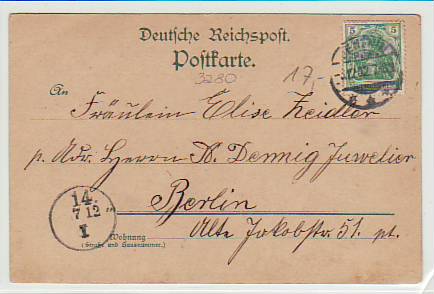 Deutsche Reichspost.
Postkarte.
3280
17,-
5 5
An
Fräulein Elise Zeidler
p. Adr. Herrn A. Dennig Juwelier
Berlin
Alte Jakobstr. 51. pt.
14.
7 12
I
Wohnung
(Straße und Hausnummer.)